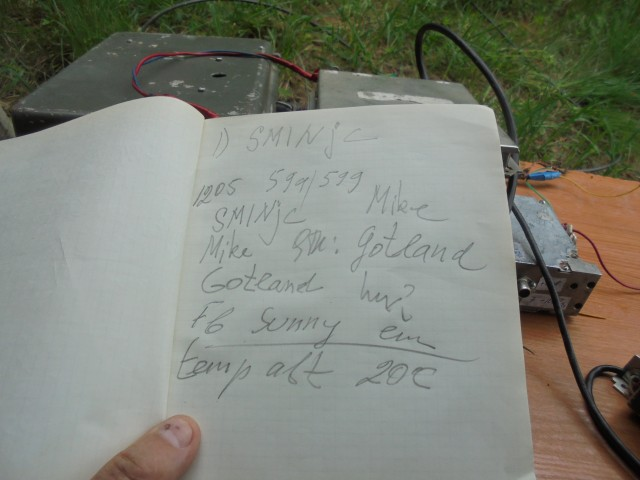 1) SM1Njc
1205 599/599
SM1Njc Mike
Mike QTH: Gotland
Gotland hw?
Fb Sunny es
temp abt 20c